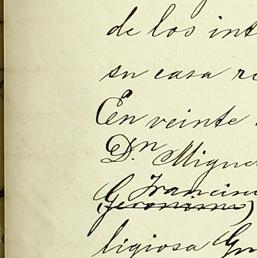 de los int
su casa r
En veinte
Dn. Migue
Francisc
(Geronimo)
ligiosa